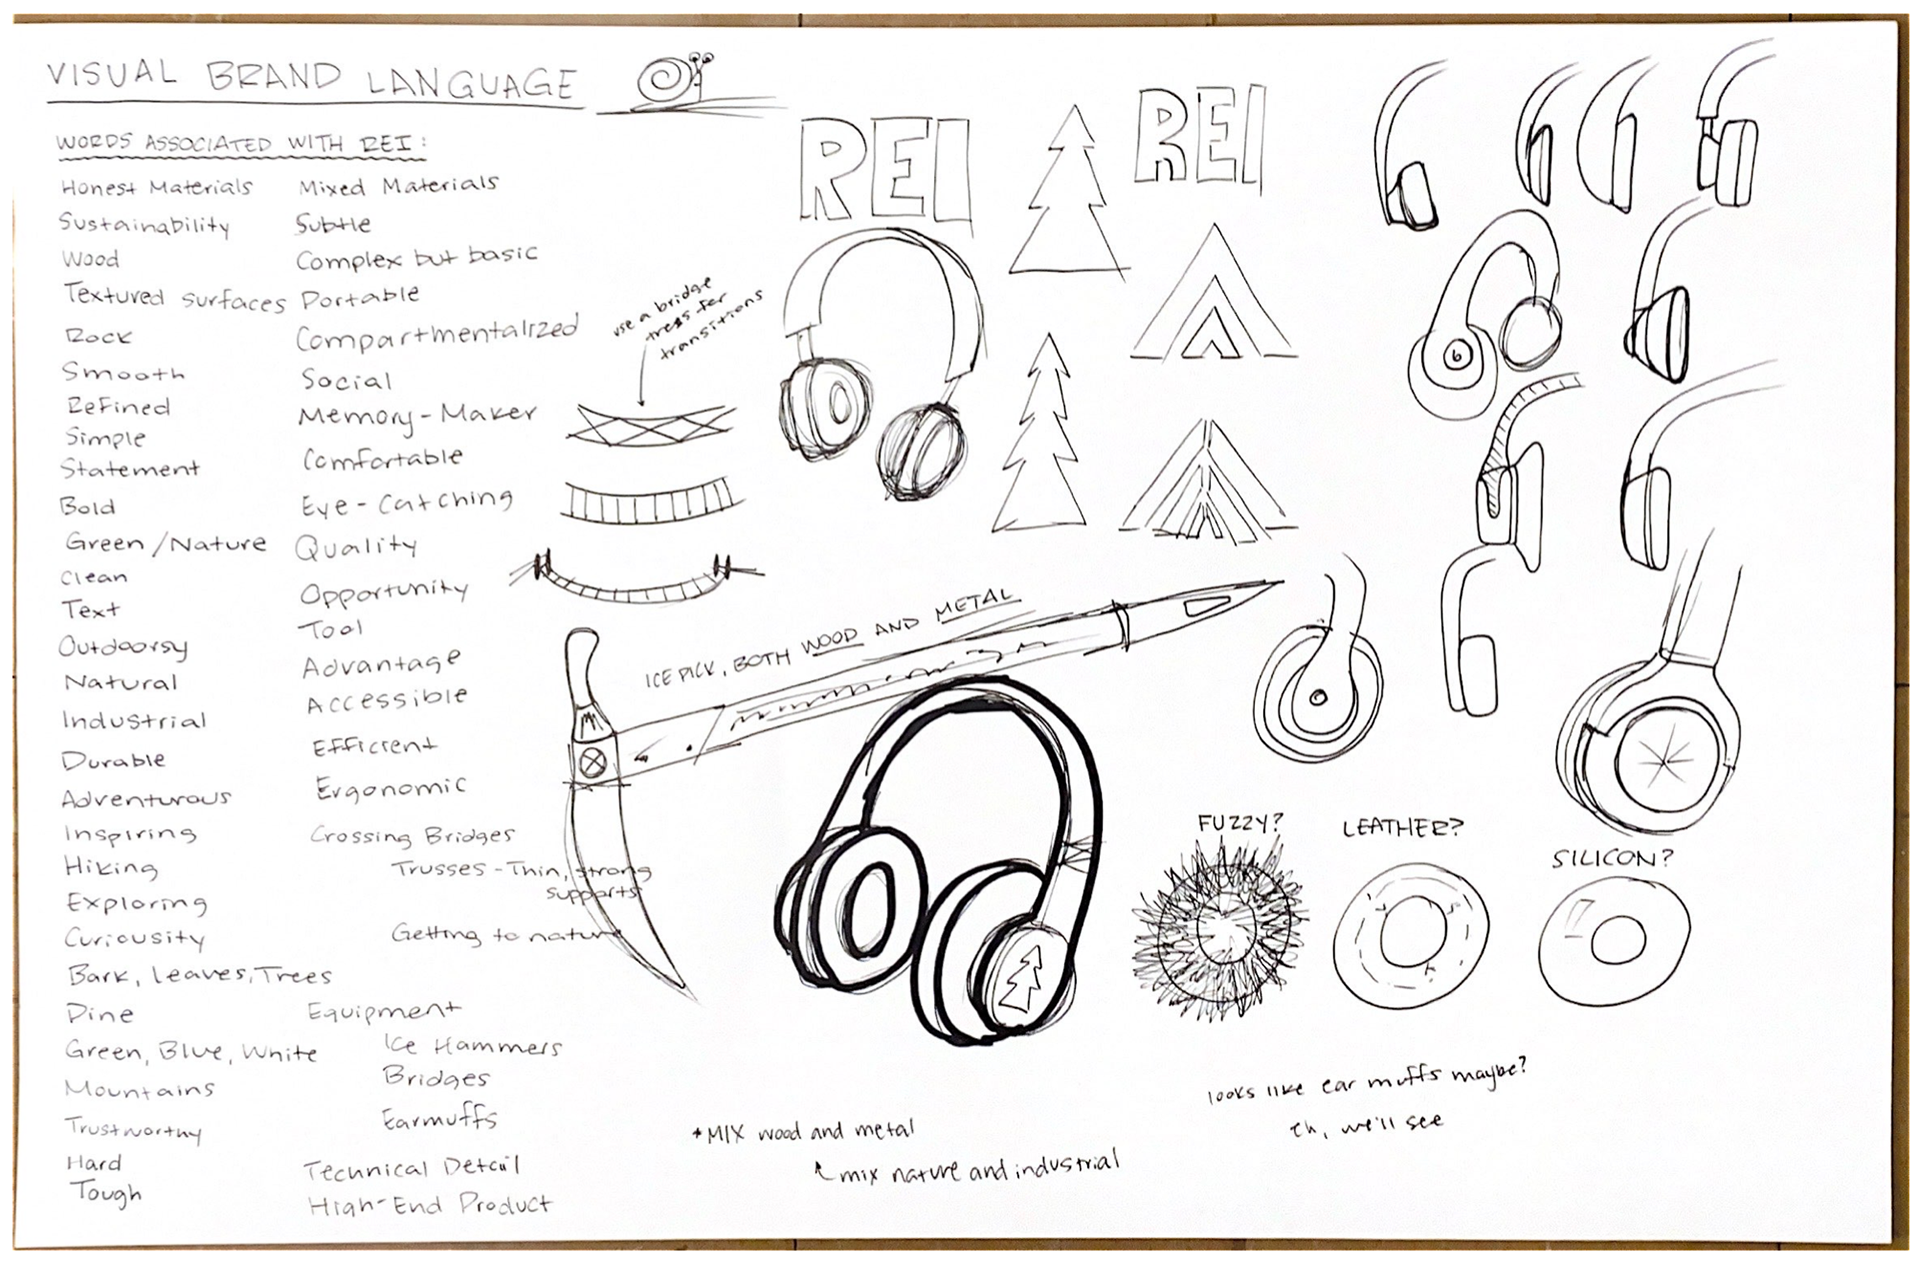 VISUAL BRAND LANGUAGE
WORDS ASSOCIATED WITH REI:
Honest Materials
Sustainability
Wood
Textured surfaces
Rock
Smooth
Refined
Simple
Statement
Bold
Green/Nature
Clean
Text
Outdoorsy
Natural
Industrial
Durable
Adventurous
Inspiring
Hiking
Exploring
Curiousity
Bark, Leaves, Trees
Pine
Green, Blue, White
Mountains
Trustworthy
Hard
Tough
Mixed Materials
Subtle
Complex but basic
Portable
Compartmentalized
Social
Memory-Maker
Comfortable
Eye-Catching
Quality
Opportunity
Tool
Advantage
Accessible
Efficient
Ergonomic
Crossing Bridges
Trusses - Thin, strong
supports
Getting to nature
Equipment
Ice Hammers
Bridges
Earmuffs
Technical Detail
High-End Product
use a bridge
truss for
transitions
REI
REI
ICE PICK, BOTH WOOD AND METAL
FUZZY?
LEATHER?
SILICON?
looks like ear muffs maybe?
eh, we'll see
+MIX wood and metal
mix nature and industrial
b